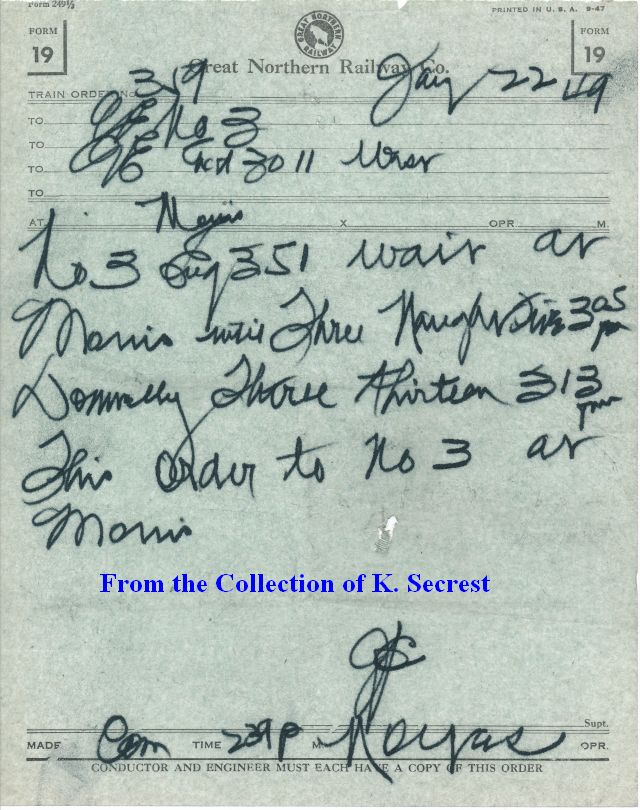 Form 249½ PRINTED IN U. S. A. 9-47
FORM 19
GREAT NORTHERN RAILWAY
FORM 19
Great Northern Railway Co.
TRAIN ORDER No. 359 Jany 22 49
TO C&E No 3
TO C&E Exd 3011 West
TO
TO
AT Morris X OPR. M.
No 3 Eng 351 wait at
Morris until Three Naught Five 305 pm
Donnelly Three thirteen 313 pm
This order to No 3 at
Morris
From the Collection of K. Secrest
Supt.
MADE Com TIME 239 P M OPR.
CONDUCTOR AND ENGINEER MUST EACH HAVE A COPY OF THIS ORDER